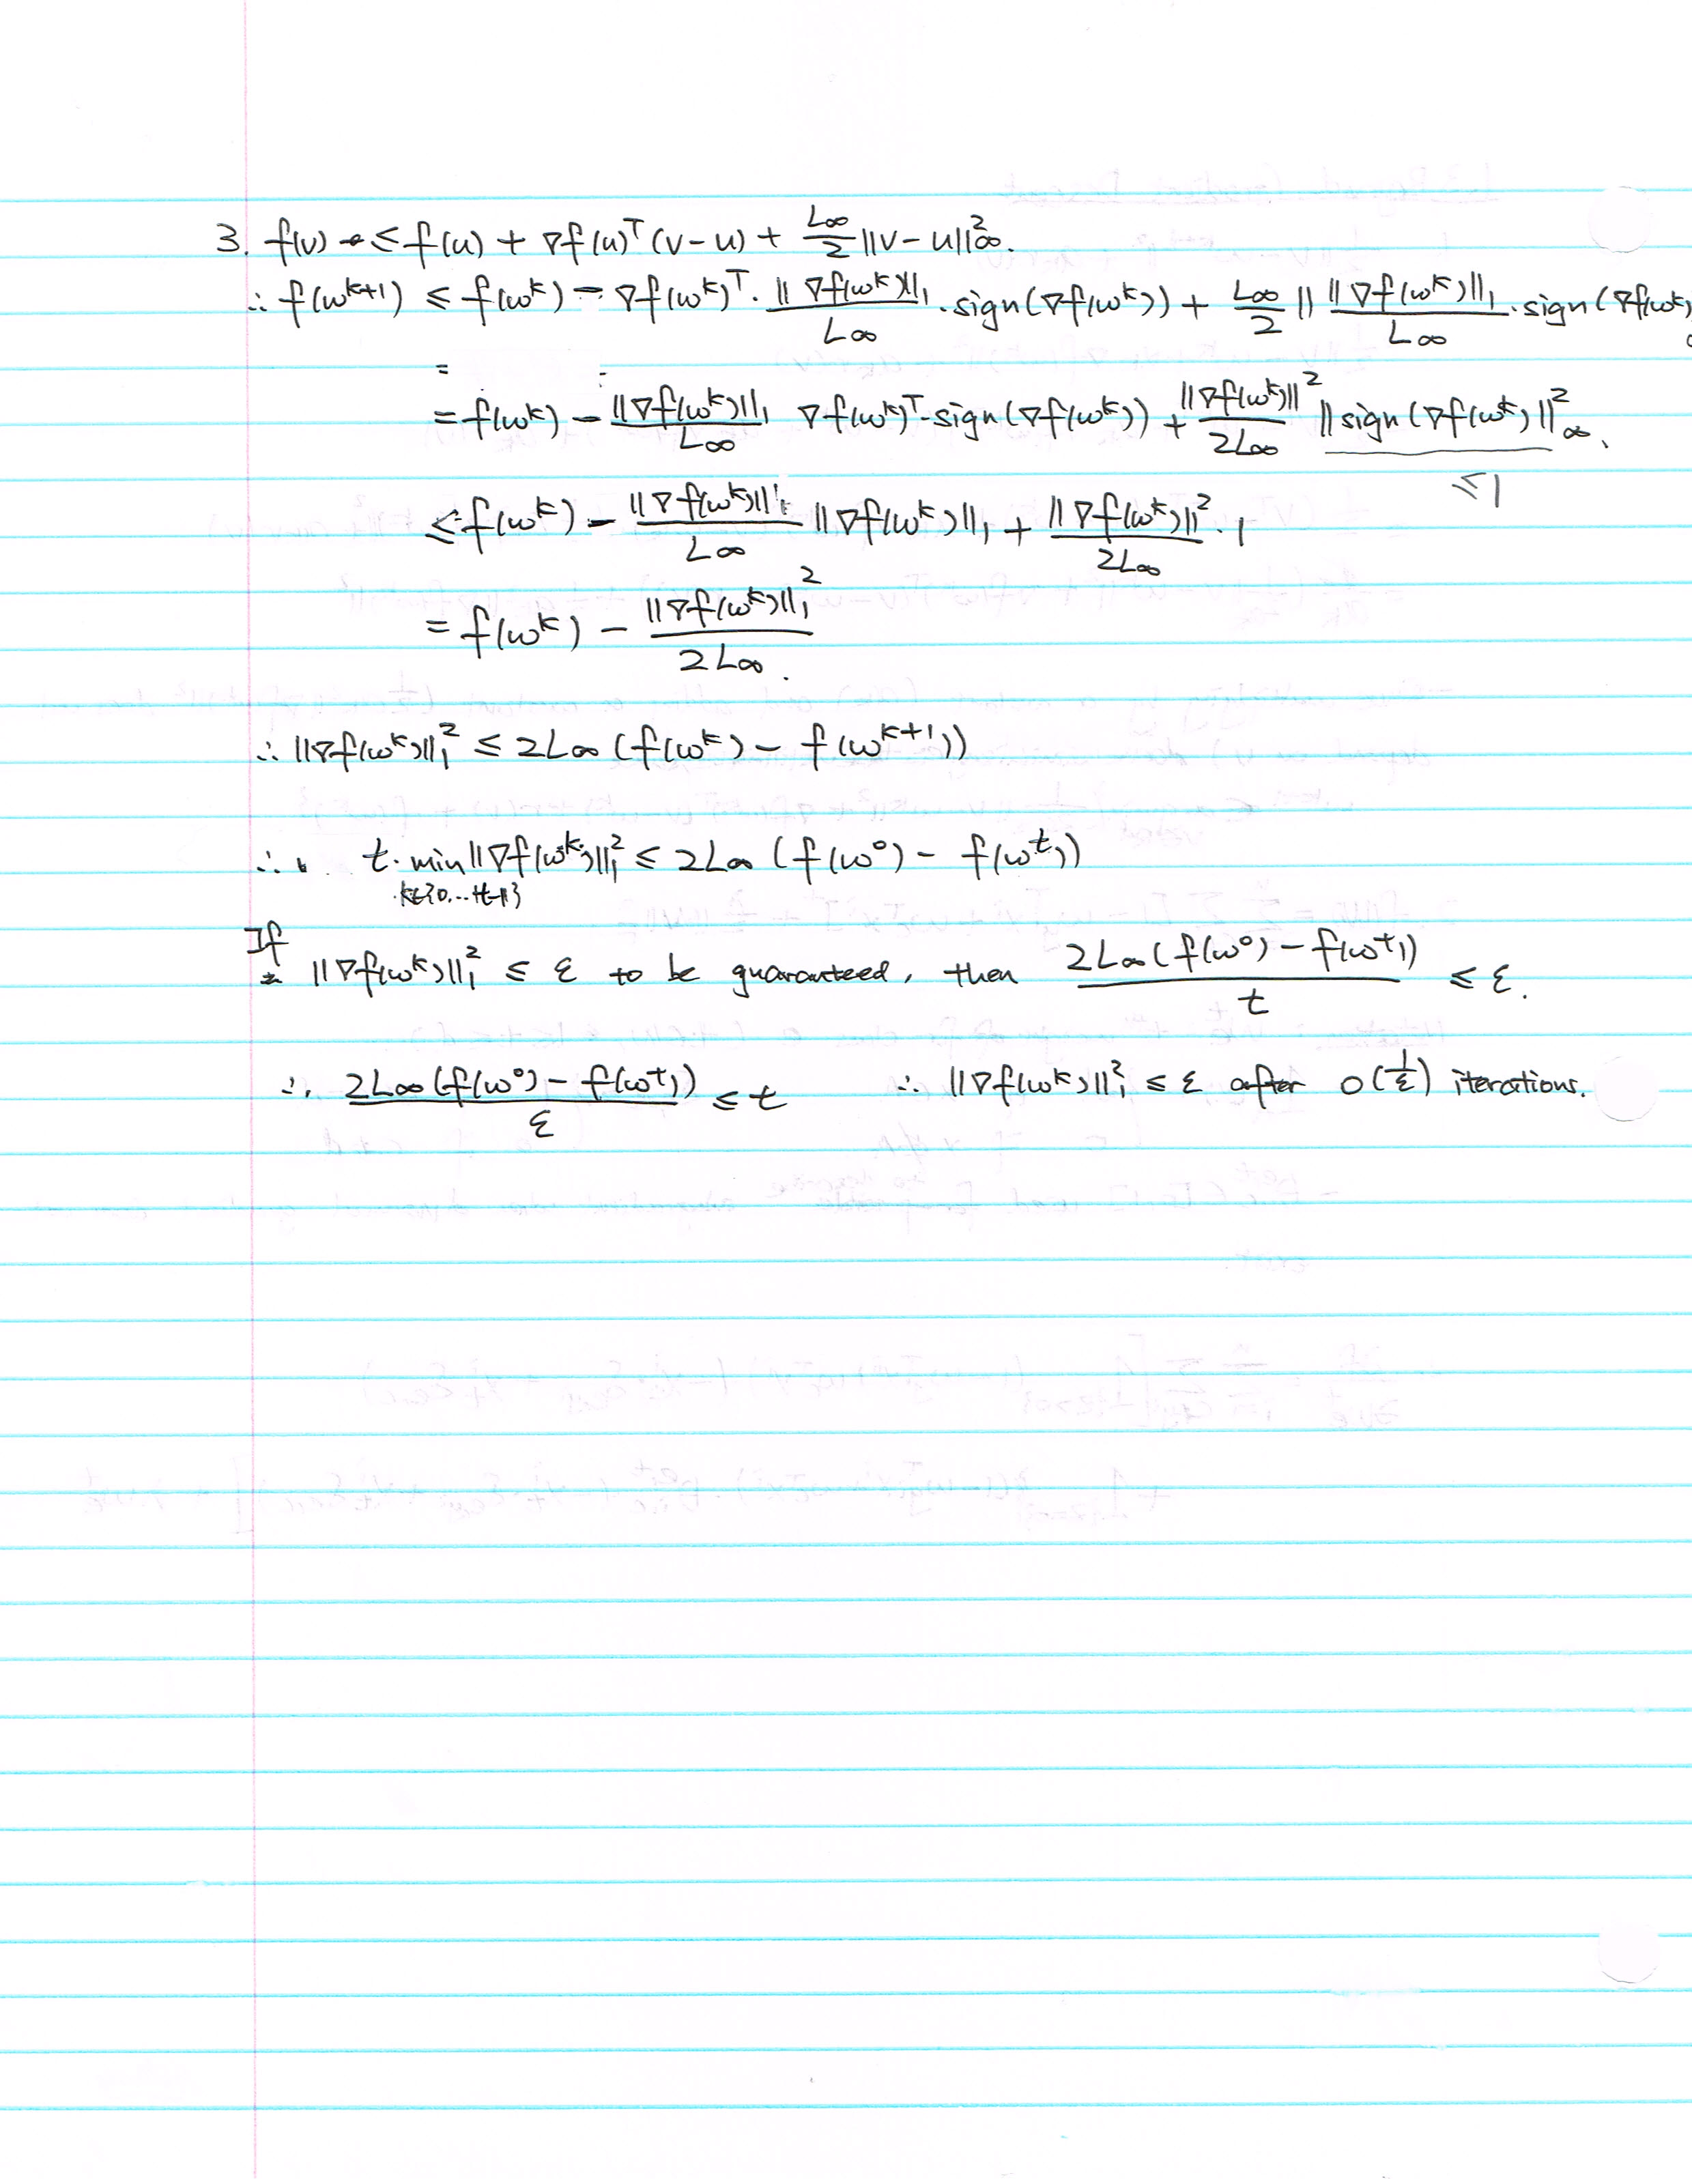 3. f(v) ≤ f(u) + ∇f(u)ᵀ(v-u) + L∞/2 ||v-u||²∞.
∴ f(wᵏ⁺¹) ≤ f(wᵏ) - ∇f(wᵏ)ᵀ · ||∇f(wᵏ)||₁/L∞ · sign(∇f(wᵏ)) + L∞/2 || ||∇f(wᵏ)||₁/L∞ · sign(∇f(wᵏ)
= f(wᵏ) - ||∇f(wᵏ)||₁/L∞ ∇f(wᵏ)ᵀ·sign(∇f(wᵏ)) + ||∇f(wᵏ)||²/2L∞ ||sign(∇f(wᵏ)||²∞.
≤1
≤ f(wᵏ) - ||∇f(wᵏ)||₁/L∞ ||∇f(wᵏ)||₁ + ||∇f(wᵏ)||²/2L∞ · 1
= f(wᵏ) - ||∇f(wᵏ)||₁²/2L∞.
∴ ||∇f(wᵏ)||₁² ≤ 2L∞(f(wᵏ) - f(wᵏ⁺¹))
∴ t· min ||∇f(wᵏ)||₁² ≤ 2L∞ (f(w⁰) - f(wᵗ))
k∈{0,...t-1}
If ||∇f(wᵏ)||₁² ≤ ε to be guaranteed, then 2L∞(f(w⁰) - f(wᵗ))/t ≤ ε.
∴ 2L∞(f(w⁰) - f(wᵗ))/ε ≤ t ∴ ||∇f(wᵏ)||₁² ≤ ε after O(1/ε) iterations.